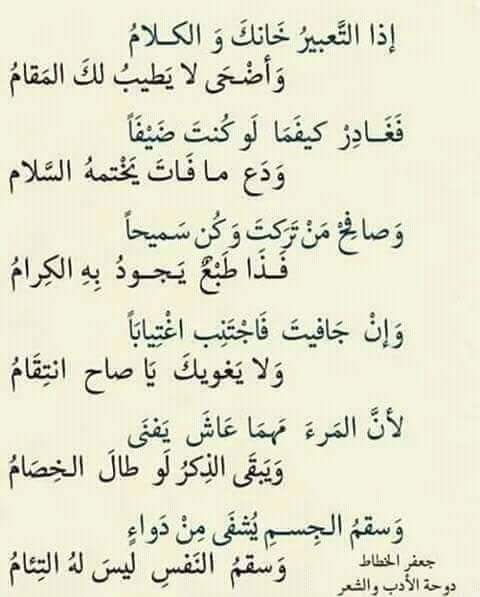 إذا التَّعبيرُ خَانكَ وَ الكـلامُ
وَأضْحَى لا يَطيبُ لكَ المَقامُ
فَغَـادِرْ كيفَمَا لَو كُنتَ ضَيْفَاً
وَدَع مـا فَـاتَ يَخْتمهُ السَّلام
وَصافِحْ مَنْ تَرَكتَ وَكُن سَميحاً
فَـذَا طَبْعٌ يَـجـودُ بِهِ الكِرامُ
وَإنْ جَافيتَ فَاجْتَنِب اغْتِياباً
وَلا يَغويكَ يَا صاح انتِقَامُ
لأنَّ المَرءَ مَهمَا عَاشَ يَفنَى
وَيَبقَى الذِكرُ لَو طالَ الخِصَامُ
وَسقمُ الجِسـمِ يُشفَى مِنْ دَواءٍ
وَسقمُ النَفسِ ليسَ لهُ التِئامُ
جعفر الخطاط
دوحة الأدب والشعر